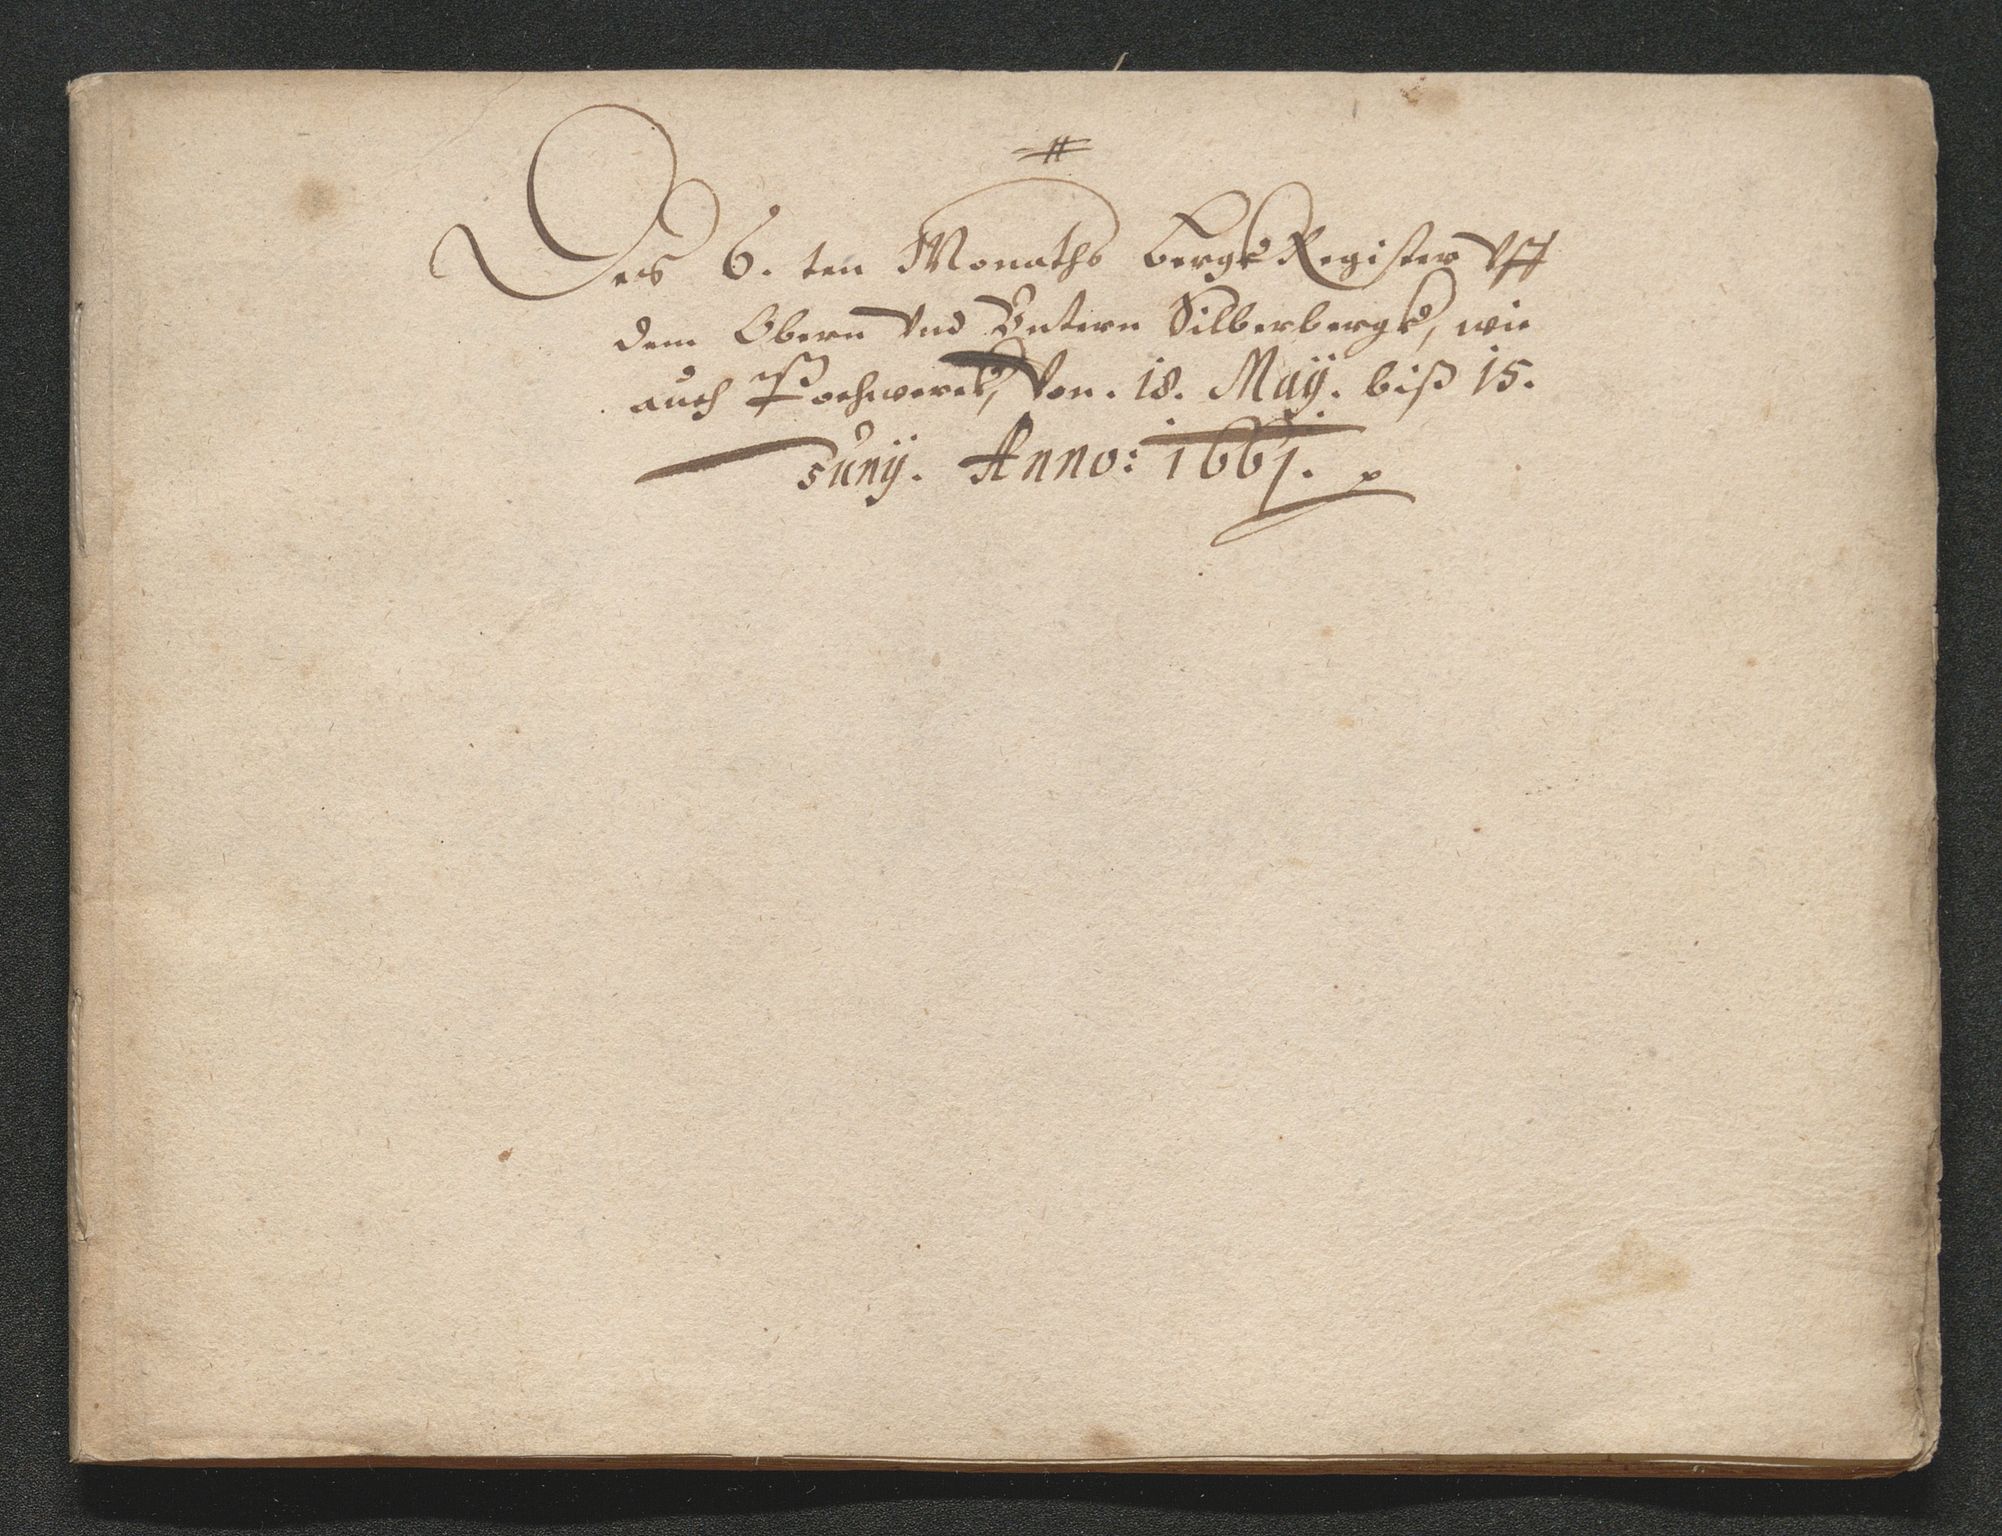 Des 6. ten Monaths Bergk Register Vff
dem Obern Vnd Vntern Silberbergk, wie
auch Pochwerck, Von. 18. Maÿ. biß 15.
Junÿ. Anno: 1661.